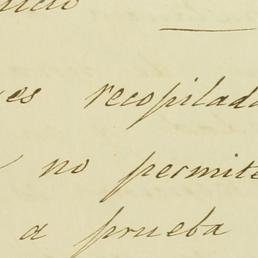 es recopilada
no permite
a prueba